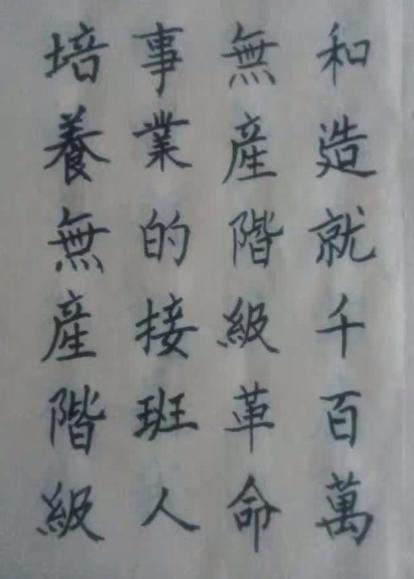 和造就千百萬
無產階級革命
事業的接班人
培養無產階級